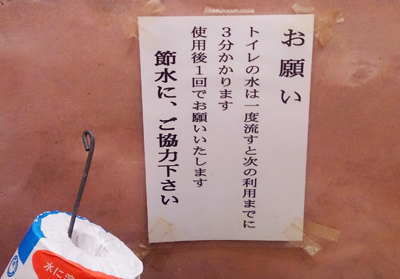 お願い
トイレの水は一度流すと次の利用までに
3分かかります
使用後1回でお願いいたします
節水に、ご協力下さい
水に溶